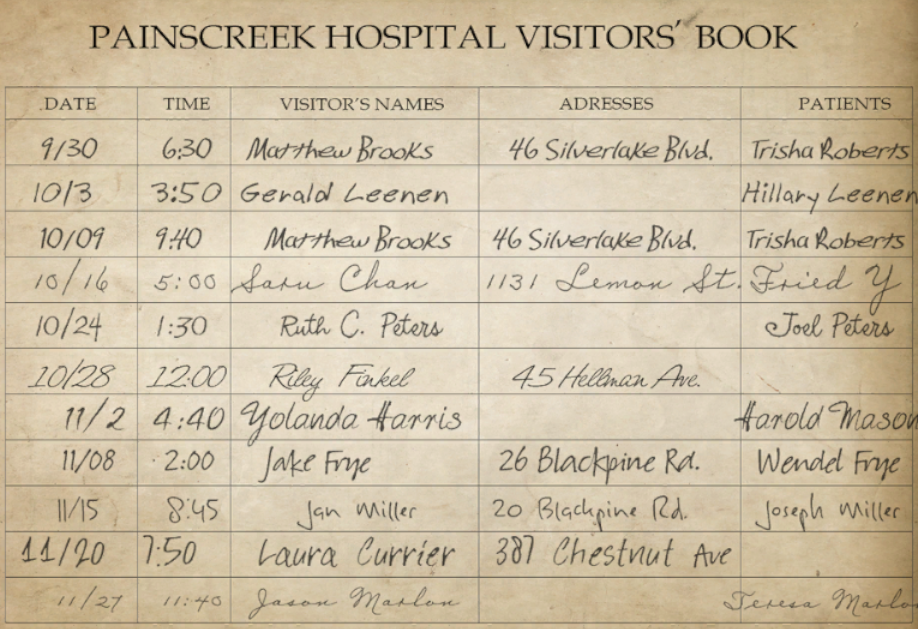 PAINSCREEK HOSPITAL VISITORS' BOOK
DATE TIME VISITOR'S NAMES ADRESSES PATIENTS
9/30 6:30 Matthew Brooks 46 Silverlake Blvd. Trisha Roberts
10/3 3:50 Gerald Leenen Hillary Leenen
10/09 9:40 Matthew Brooks 46 Silverlake Blvd. Trisha Roberts
10/16 5:00 Saru Chan 1131 Lemon St. Fried Y
10/24 1:30 Ruth C. Peters Joel Peters
10/28 12:00 Riley Finkel 45 Hellman Ave.
11/2 4:40 Yolanda Harris Harold Mason
11/08 2:00 Jake Frye 26 Blackpine Rd. Wendel Frye
11/15 8:45 Jan Miller 20 Blackpine Rd. Joseph Miller
11/20 7:50 Laura Currier 387 Chestnut Ave
11/27 11:40 Jason Marlon Teresa Marlo